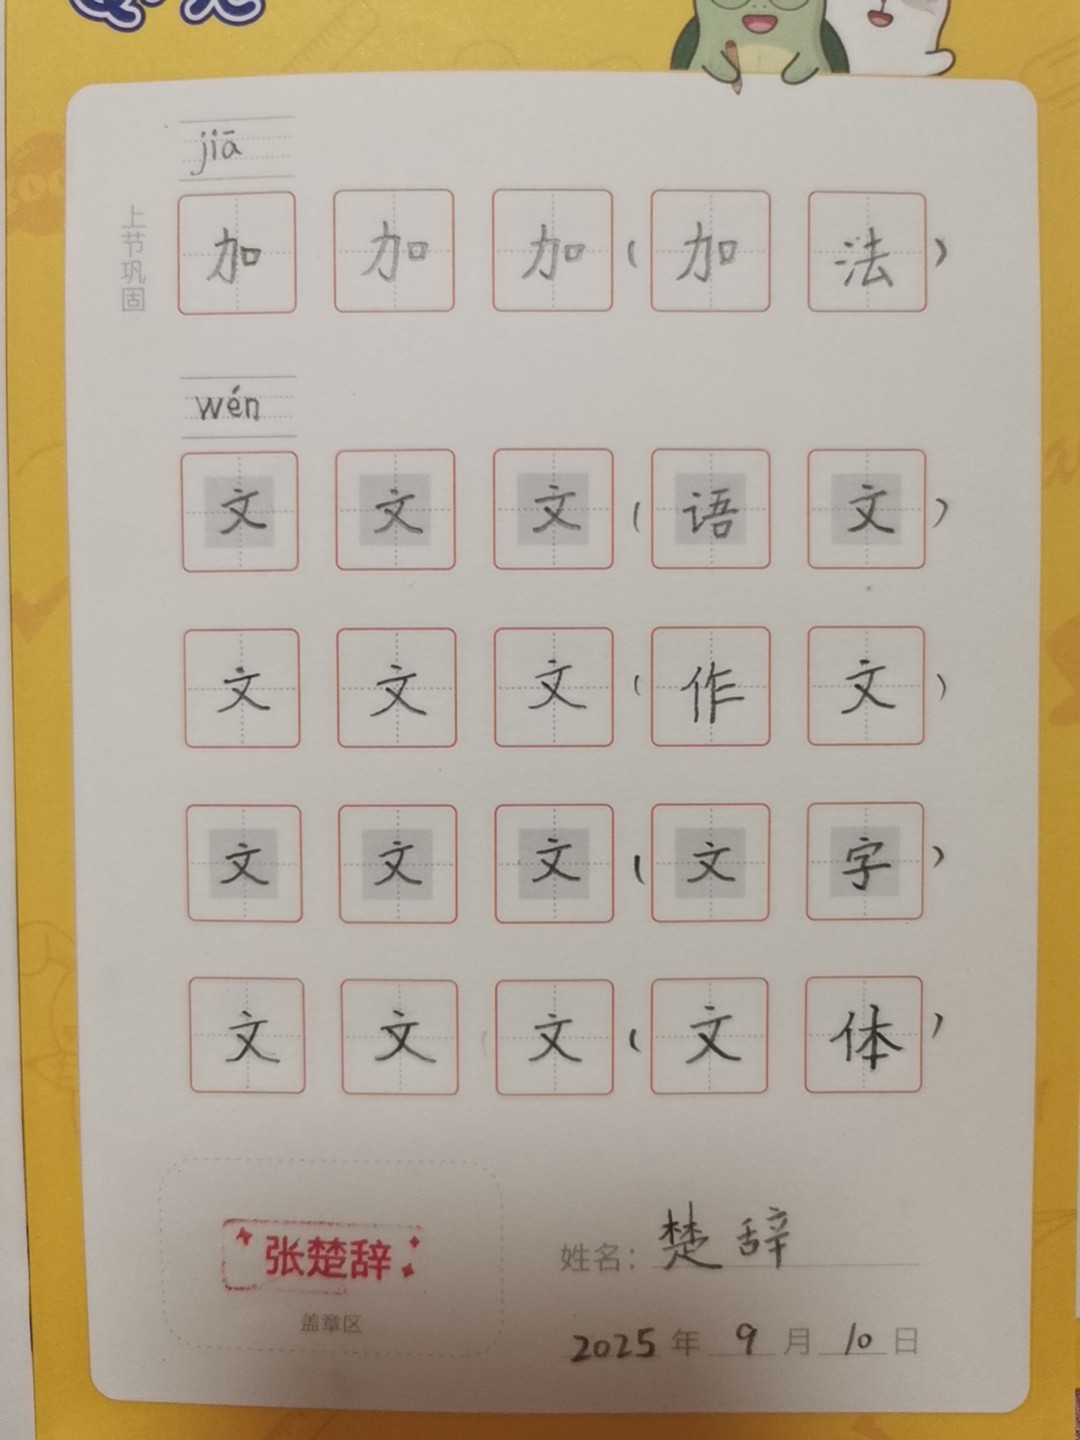 jiā
上节巩固
加 加 加 ( 加 法 )
wén
文 文 文 ( 语 文 )
文 文 文 ( 作 文 )
文 文 文 ( 文 字 )
文 文 文 ( 文 体 )
张楚辞
盖章区
姓名: 楚辞
2025年 9月 10日